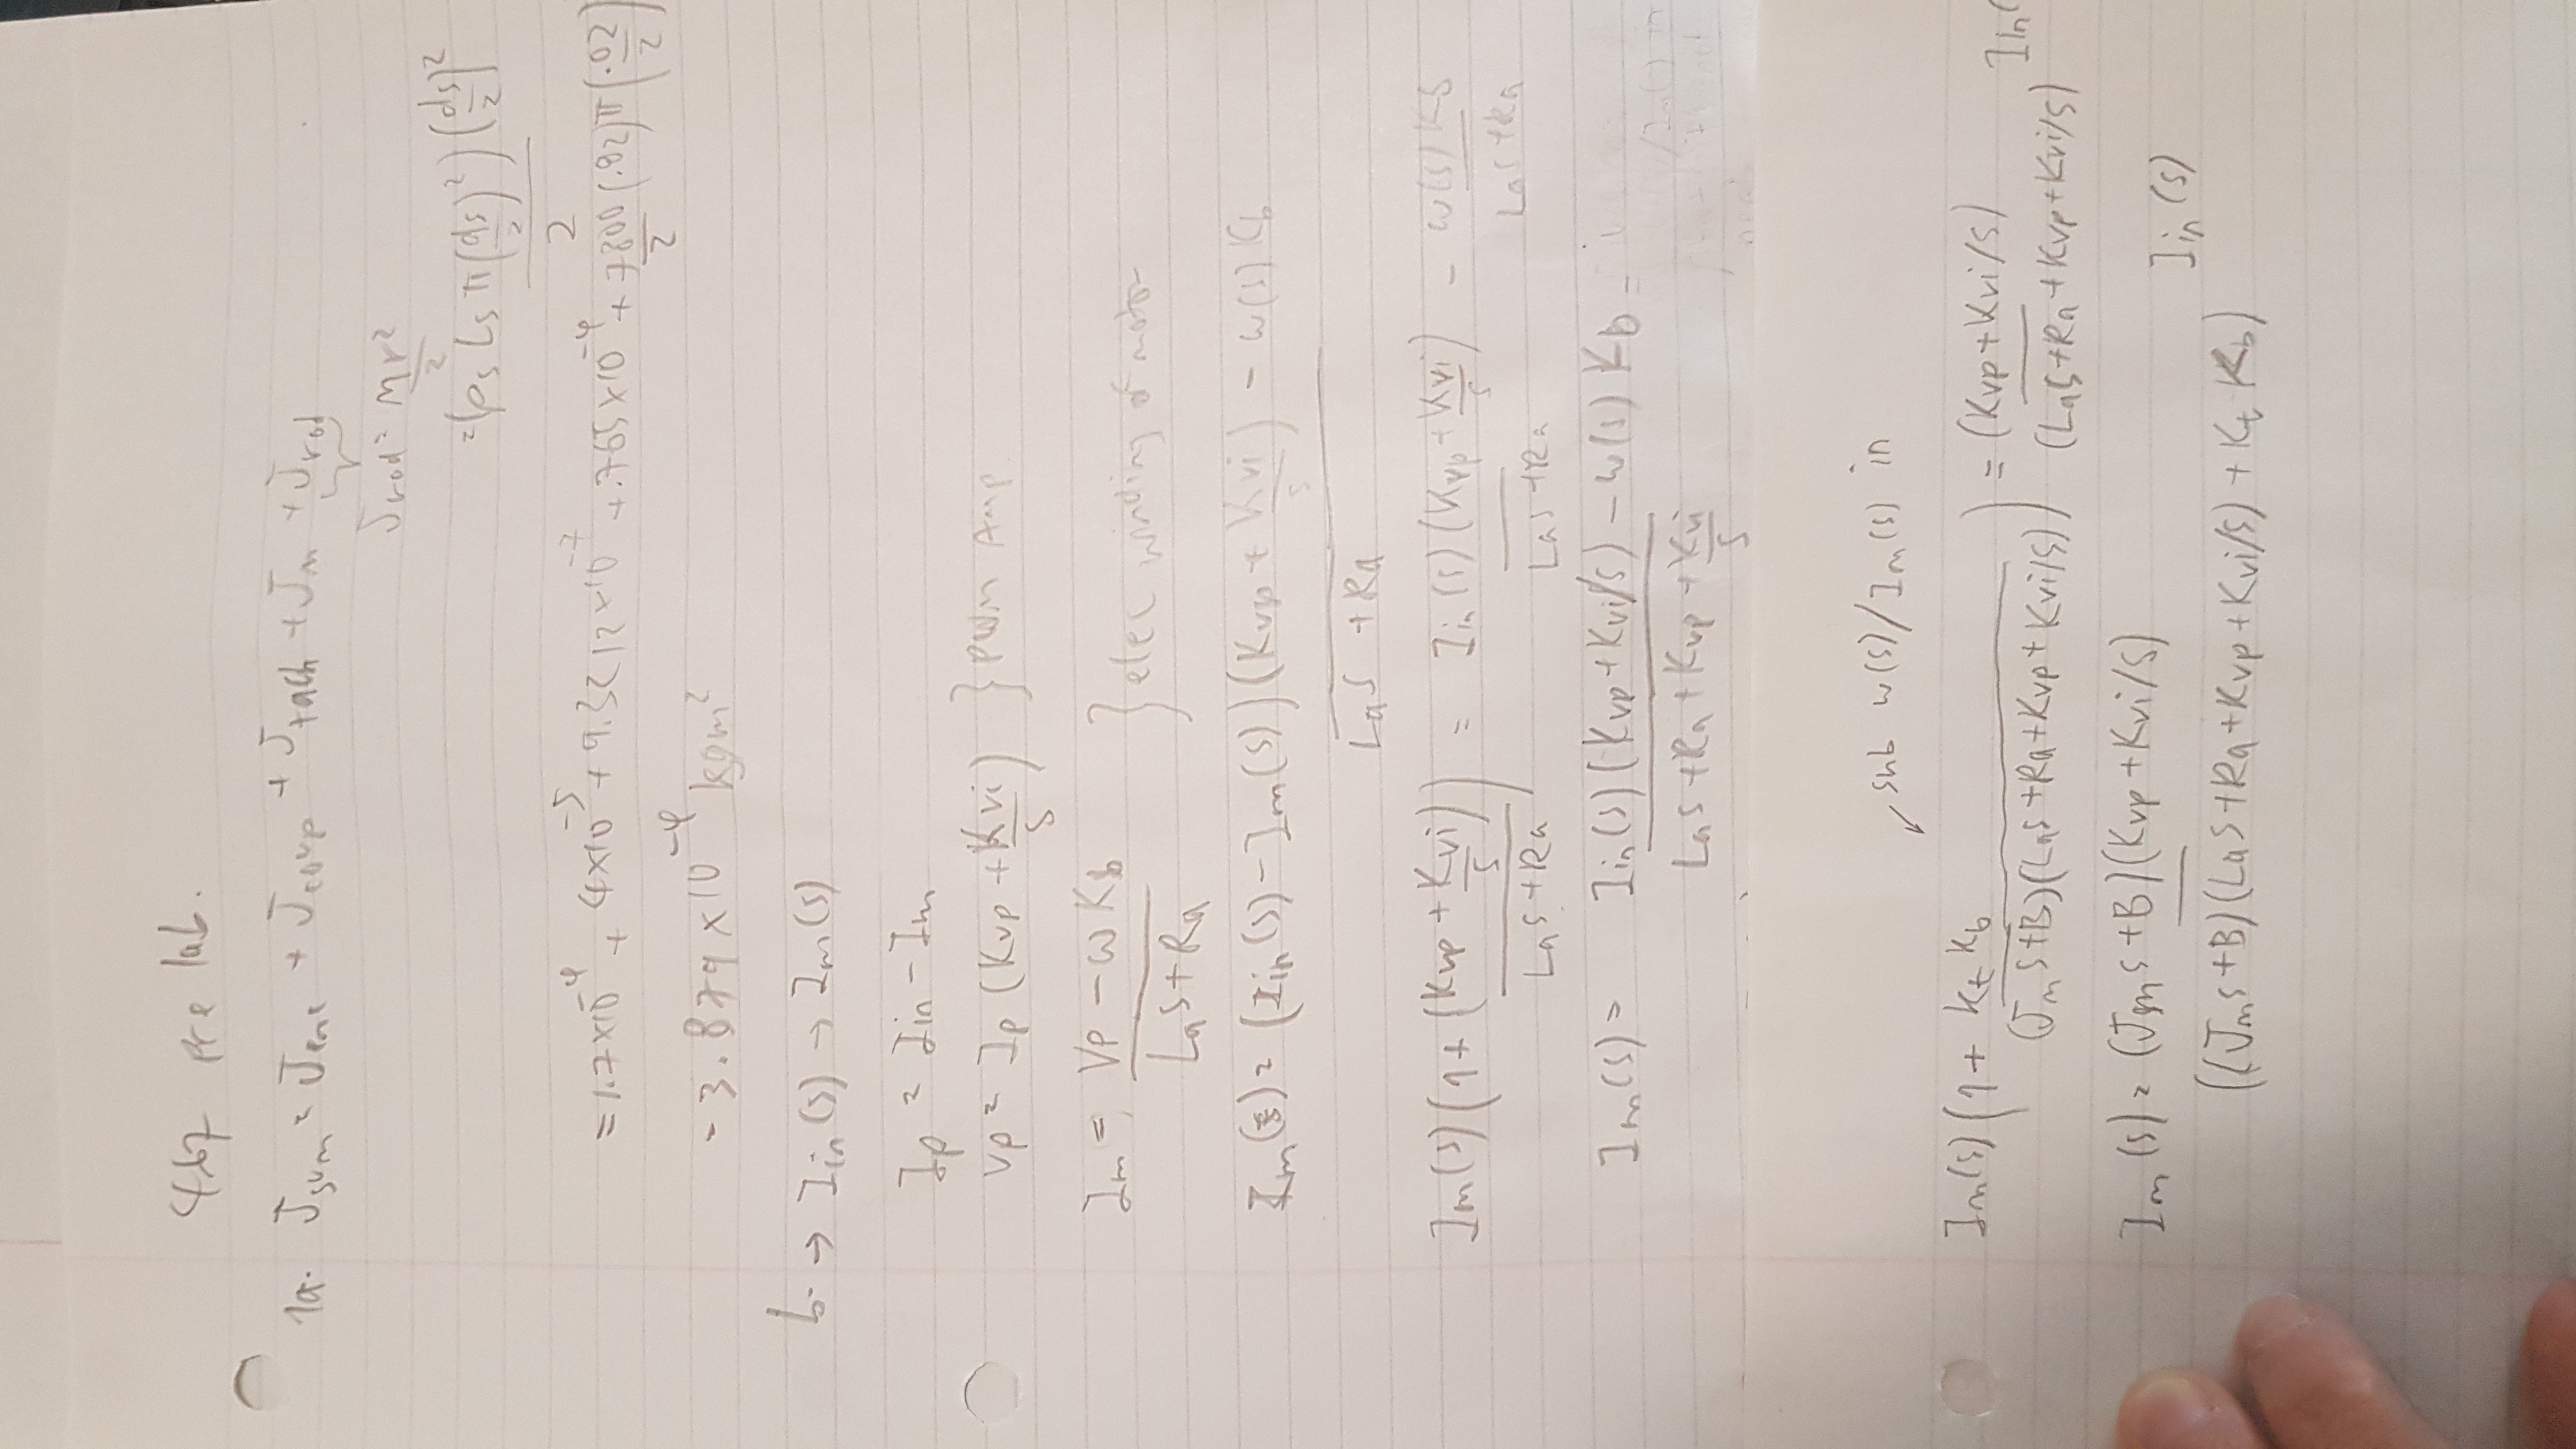 467 pre lab.
1a. Jsum = Jenc + Jcoup + Jtach + Jm + Jrod
Jrod = mr²/2
= (ρs Ls π(ds/2)²)(ds/2)²/2
= 1.7×10⁻⁴ + 4×10⁻⁵ + 9.3212×10⁻⁷ + .765×10⁻⁴ + 7800/2 (.82)π(.02/2)
= 3.879×10⁻⁴ kgm²
b. → Iin(s) → Im(s)
Ip = Iin - Im
Vp = Ip (Kvp + Kvi/s) } PWM Amp
Im = (Vp - ωKb)/(LaS + Ra) } elec winding of motor
Im(s) = ((Iin(s) - Im(s))(Kvp + Kvi/s) - ω(s)Kb)/(LaS + Ra)
Im(s)(1 + (Kvp + Kvi/s)/(LaS + Ra)) = Iin(s)(Kvp + Kvi/s)/(LaS + Ra) - ω(s)Kb/(LaS + Ra)
Im(s) = (Iin(s)(Kvp + Kvi/s) - ω(s)Kb)/(LaS + Ra + Kvp + Kvi/s) =
↙ sub ω(s)/Im(s) in
Im(s)(1 + KtKb/((JmS+B)(LaS+Ra+Kvp+Kvi/s))) = (Kvp+Kvi/s)/(LaS+Ra+Kvp+Kvi/s) Iin(
Im(s) = (JmS+B)(Kvp+Kvi/s)/((JmS+B)(LaS+Ra+Kvp+Kvi/s) + KtKb) Iin(s)